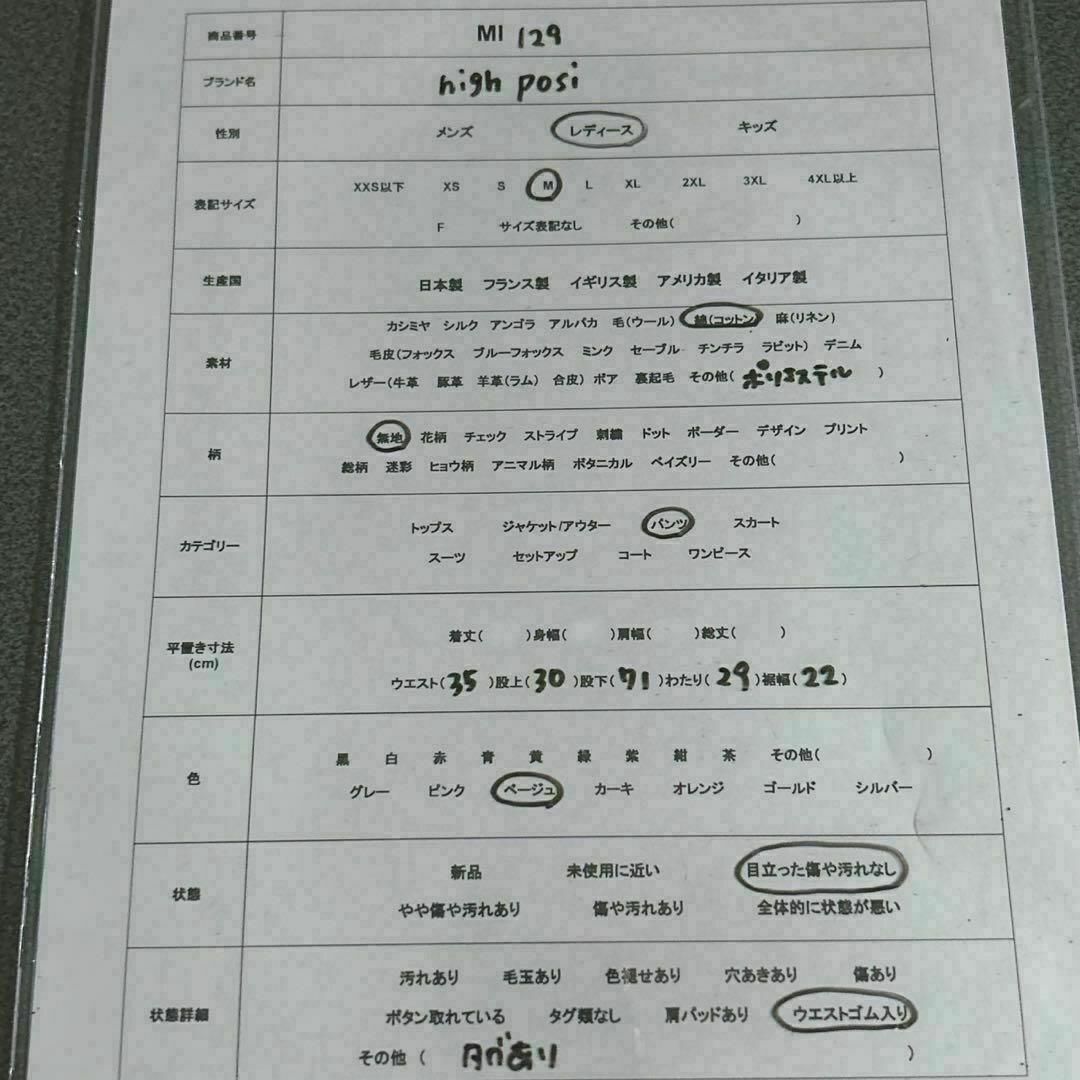 商品番号 MI 129
ブランド名 high posi
性別 メンズ レディース キッズ
表記サイズ XXS以下 XS S M L XL 2XL 3XL 4XL以上
F サイズ表記なし その他( )
生産国 日本製 フランス製 イギリス製 アメリカ製 イタリア製
素材 カシミヤ シルク アンゴラ アルパカ 毛(ウール) 綿(コットン) 麻(リネン)
毛皮(フォックス ブルーフォックス ミンク セーブル チンチラ ラビット) デニム
レザー(牛革 豚革 羊革(ラム) 合皮) ボア 裏起毛 その他( ポリエステル )
柄 無地 花柄 チェック ストライプ 刺繍 ドット ボーダー デザイン プリント
総柄 迷彩 ヒョウ柄 アニマル柄 ボタニカル ペイズリー その他( )
カテゴリー トップス ジャケット/アウター パンツ スカート
スーツ セットアップ コート ワンピース
平置き寸法
(cm)
着丈( )身幅( )肩幅( )総丈( )
ウエスト( 35 )股上( 30 )股下( 71 )わたり( 29 )裾幅( 22 )
色 黒 白 赤 青 黄 緑 紫 紺 茶 その他( )
グレー ピンク ベージュ カーキ オレンジ ゴールド シルバー
状態 新品 未使用に近い 目立った傷や汚れなし
やや傷や汚れあり 傷や汚れあり 全体的に状態が悪い
状態詳細 汚れあり 毛玉あり 色褪せあり 穴あきあり 傷あり
ボタン取れている タグ類なし 肩パッドあり ウエストゴム入り
その他 ( タグあり )